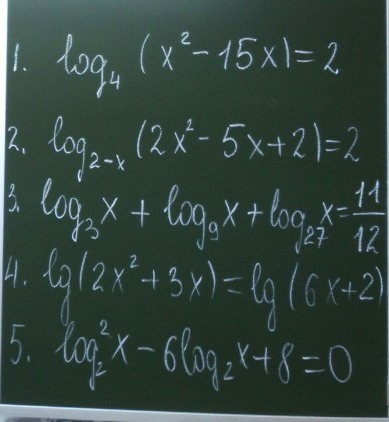 1. log₄ (x² - 15x) = 2
2. log₂₋ₓ (2x² - 5x + 2) = 2
3. log₃x + log₉x + log₂₇x = 11/12
4. lg(2x² + 3x) = lg(6x + 2)
5. log₂²x - 6log₂x + 8 = 0